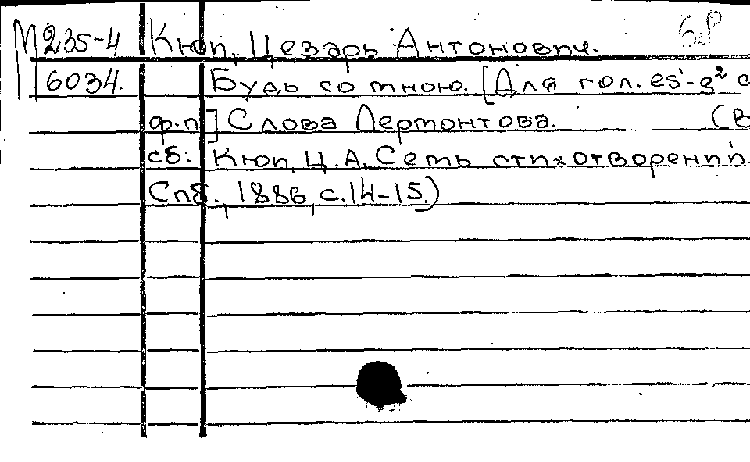 М235-4 Кюи, Цезарь Антонович. 6.Р
16034. Будь со мною. [Для гол. es¹-g² с
ф.п.] Слова Лермонтова. (В
сб: Кюи, Ц.А. Семь стихотворений.
Спб., 1886, с.14-15.)